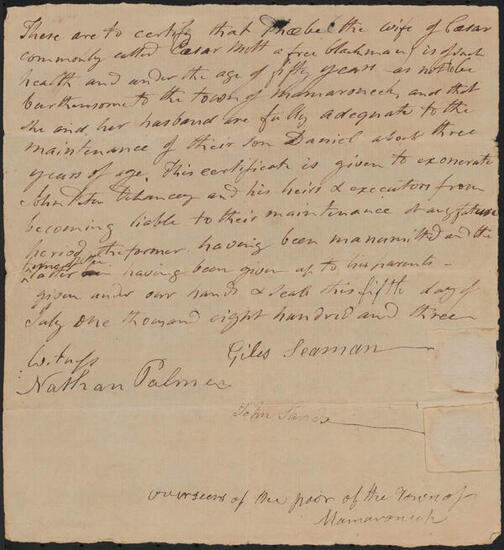 These are to certify that Phœbe the wife of Cæsar
commonly called Cæsar Mott a free blackman, is of such
health and under the age of fifty years as not to be
burthensome to the town of Mamaroneck, and that
she and her husband are fully adequate to the
maintenance of their son Daniel about three
years of age. This certificate is given to exonerate
John Peter Delancey and his heirs & executors from
becoming liable to their maintenance at any future
period, the former having been manumitted and the
latter having been given up to his parents –
given under our hands & seals this fifth day of
July one thousand eight hundred and three
Witness
Giles Seaman
Nathan Palmer
John Sands
overseers of the poor of the Town of
Mamaroneck